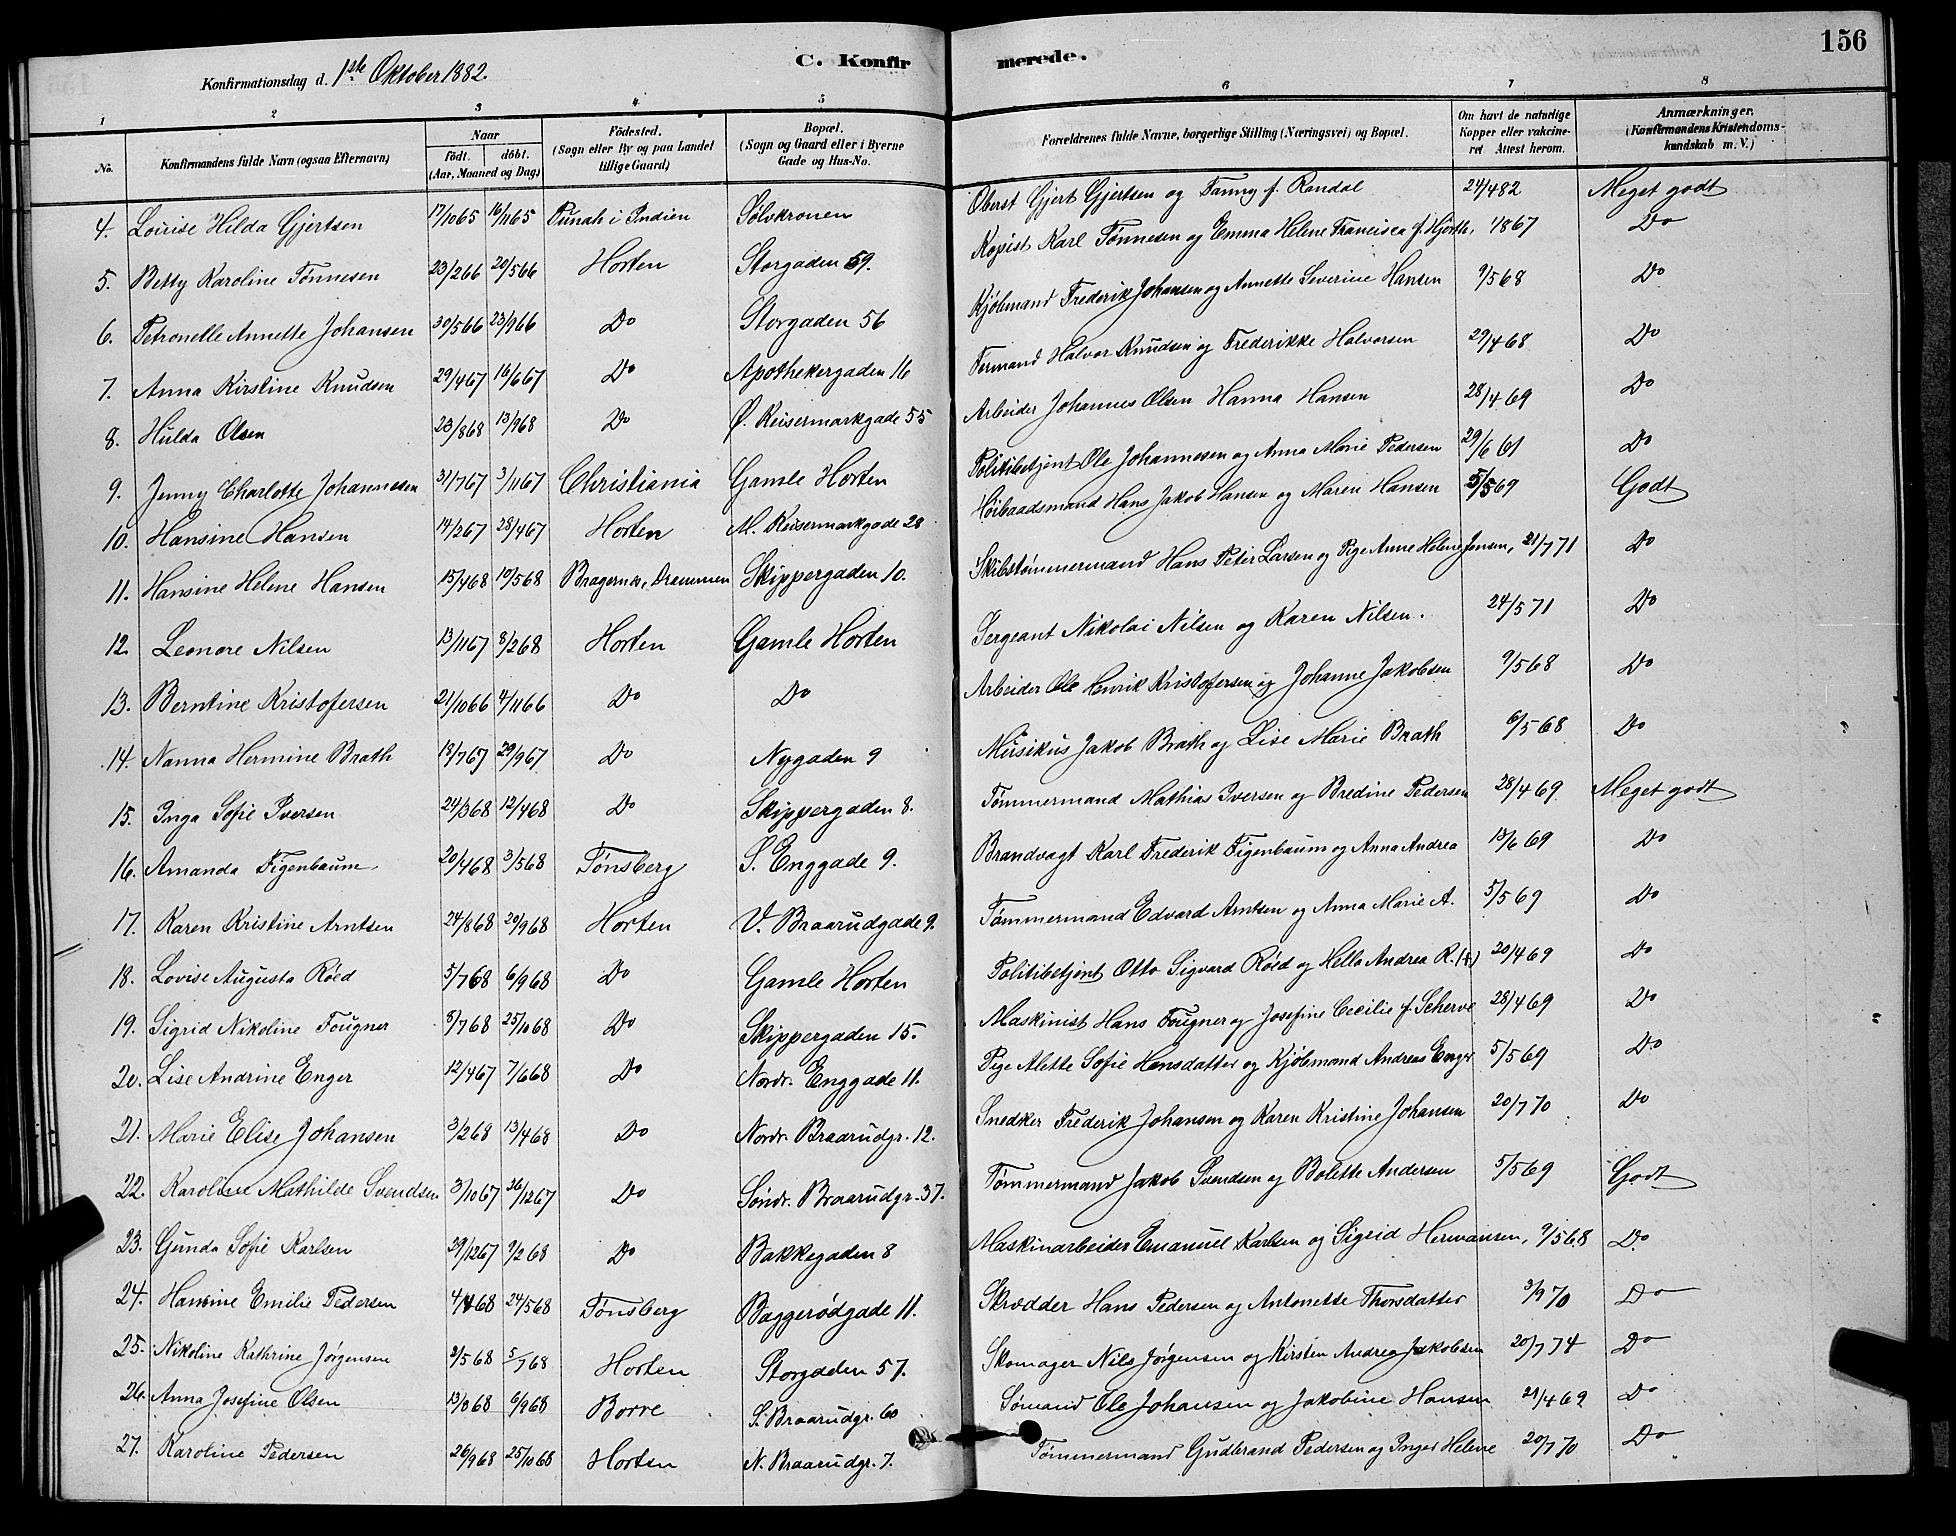 156
Konfirmationsdag d. 1ste Oktober 1882.
C. Konfirmerede.
1 2 3 4 5 6 7 8
No.
Konfirmandens fulde Navn (ogsaa Efternavn)
Naar
födt. döbt.
(Aar, Maaned og Dag)
Födested.
(Sogn eller By og paa Landet
tillige Gaard)
Bopæl.
(Sogn og Gaard eller i Byerne
Gade og Hus-No.
Forældrenes fulde Navne, borgerlige Stilling (Næringsvei) og Bopæl.
Om havt de naturlige
Kopper eller vakcine-
ret Attest herom.
Anmærkninger.
(Konfirmandens Kristendoms-
kundskab m. V.)
4. Lovise Hilda Gjertsen 17/10 65 16/11 65 Punah i Indien Sølvkronen Oberst Gjert Gjertsen og Fanny f. Randal 24/4 82 Meget godt
5. Betty Karoline Tønnesen 23/2 66 20/5 66 Horten Storgaden 59. Kopist Karl Tønnesen og Emma Helene Francisca f. Hjorth, 1867 Do
6. Petronelle Annette Johansen 30/5 66 23/9 66 Do Storgaden 56 Kjøbmand Frederik Johansen og Annette Severine Hansen 9/5 68 Do
7. Anna Kirstine Knudsen 29/4 67 16/6 67 Do Apothekergaden 16 Formand Halvor Knudsen og Frederikke Halvorsen 29/4 68 Do
8. Hulda Olsen 23/8 68 13/9 68 Do Ø. Keisermarkgade 55 Arbeider Johannes Olsen Hanna Hansen 28/4 69 Do
9. Jenny Charlotte Johannesen 31/7 67 3/11 67 Christiania Gamle Horten Politibetjent Ole Johannesen og Anna Marie Pedersen 29/6 61 Do
10. Hansine Hansen 14/2 67 28/4 67 Horten M. Keisermarkgade 28 Høibaadsmand Hans Jakob Hansen og Maren Hansen 5/5 69 Godt
11. Hansine Helene Hansen 15/4 68 19/5 68 Bragernæs, Drammen Skippergaden 10. Skibstømmermand Hans Peter Larsen og Pige Anne Helene Jensen, 21/7 71 Do
12. Leonore Nilsen 13/11 67 8/2 68 Horten Gamle Horten Sergeant Nikolai Nilsen og Karen Nilsen. 24/5 71 Do
13. Berntine Kristofersen 21/10 66 4/11 66 Do Do Arbeider Ole Henrik Kristofersen og Johanne Jakobsen 9/5 68 Do
14. Nanna Hermine Brath 18/7 67 29/9 67 Do Nygaden 9 Musikus Jakob Brath og Lise Marie Brath 6/5 68 Do
15. Inga Sofie Iversen 24/3 68 12/4 68 Do Skippergaden 8. Tømmermand Mathias Iversen og Bredine Pedersen 28/4 69. Meget godt
16. Amanda Figenbaum 20/4 68 3/5 68 Tønsberg S. Enggade 9. Brandvagt Karl Frederik Figenbaum og Anna Andrea 13/6 69 Do
17. Karen Kristine Arntsen 24/8 68 20/9 68 Horten V. Braarudgade 9. Tømmermand Edvard Arntsen og Anna Marie A. 5/5 69 Do
18. Lovise Augusta Röed 5/7 68 6/9 68 Do Gamle Horten Politibetjent Otto Sigvard Röed og Hella Andrea R. (+) 20/4 69 Do
19. Sigrid Nikoline Fougner 8/7 68 25/10 68 Do Skippergaden 15. Maskinist Hans Fougner og Josefine Cecilie f. Scherve 28/4 69 Do
20. Lise Andrine Enger 12/4 67 7/6 68 Do Nordr. Enggade 11. Pige Alette Sofie Hansdatter og Kjøbmand Andreas Enger 5/5 69 Do
21. Marie Elise Johansen 3/2 68 13/4 68 Do Nordr. Braarudgr. 12. Snedker Frederik Johansen og Karen Kristine Johansen 20/7 70 Do
22. Karoline Mathilde Svendsen 3/10 67 26/12 67 Do Söndr. Braarudgr. 37. Tømmermand Jakob Svendsen og Bolette Andersen 5/5 69 Godt
23. Gunda Sofie Karlsen 29/12 67 9/2 68 Do Bakkegaden 8 Maskinarbeider Emanuel Karlsen og Sigrid Hermansen, 9/5 68 Do
24. Hansine Emilie Pedersen 4/4 68 24/5 68 Tønsberg Baggerødgade 11. Skrædder Hans Pedersen og Antonette Thorsdatter 3/9 70 Do
25. Nikoline Kathrine Jørgensen 2/5 68 5/7 68 Horten Storgaden 57. Skomager Nils Jørgensen og Kirsten Andrea Jakobsen 20/7 74 Do
26. Anna Josefine Olsen 13/8 68 6/9 68 Borre S. Braarudgr. 60 Sømand Ole Johansen og Jakobine Hansen 21/4 69 Do
27. Karoline Pedersen 26/9 68 25/10 68 Horten N. Braarudgr. 7. Tømmermand Gudbrand Pedersen og Inger Helene 20/7 70 Do